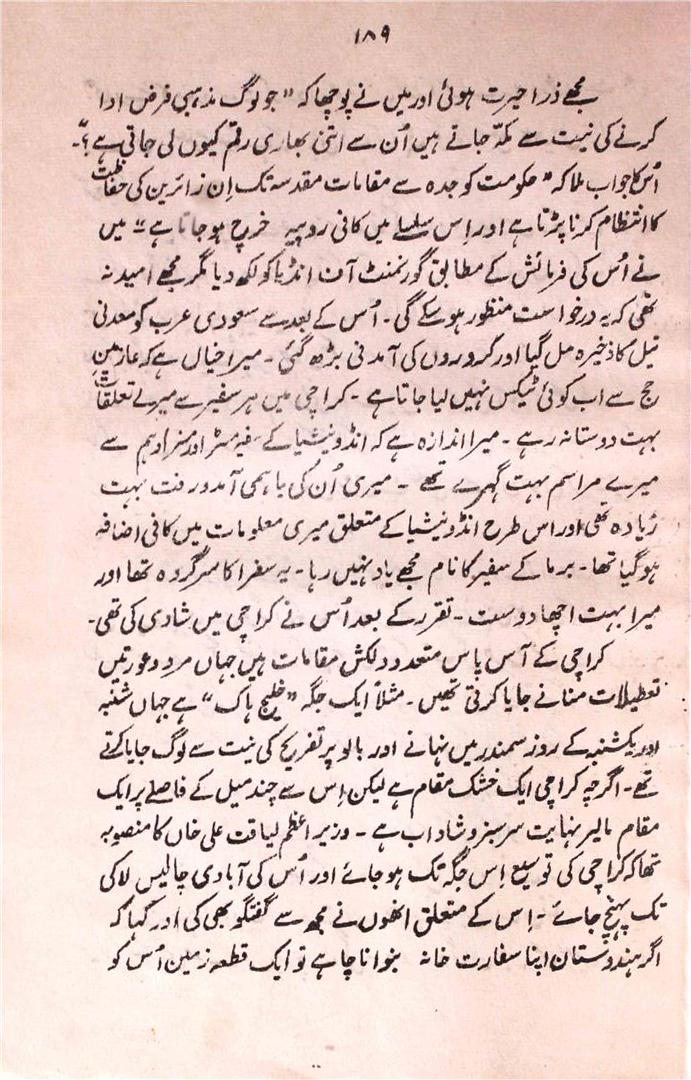 ۱۸۹
مجھے ذرا حیرت ہوئی اور میں نے پوچھا کہ "جو لوگ مذہبی فرض ادا
کرنے کی نیت سے مکہ جاتے ہیں اُن سے اتنی بھاری رقم کیوں لی جاتی ہے؟"۔
اُس کا جواب ملا کہ "حکومت کو جدہ سے مقامات مقدسہ تک اِن زائرین کی حفاظت
کا انتظام کرنا پڑتا ہے اور اِس سلسلے میں کافی روپیہ خرچ ہو جاتا ہے"۔ میں
نے اُس کی فرمائش کے مطابق گورنمنٹ آف انڈیا کو لکھ دیا مگر مجھے امید نہ
تھی کہ یہ درخواست منظور ہو سکے گی۔ اُس کے بعد سے سعودی عرب کو معدنی
تیل کا ذخیرہ مل گیا اور کروروں کی آمدنی بڑھ گئی۔ میرا خیال ہے کہ عازمینِ
حج سے اب کوئی ٹیکس نہیں لیا جاتا ہے۔ کراچی میں ہر سفیر سے میرے تعلقات
بہت دوستانہ رہے۔ میرا اندازہ ہے کہ انڈونیشیا کے سفیر مسٹر اور مسز ادہم سے
میرے مراسم بہت گہرے تھے۔ میری اُن کی باہمی آمد و رفت بہت
زیادہ تھی اور اس طرح انڈونیشیا کے متعلق میری معلومات میں کافی اضافہ
ہو گیا تھا۔ برما کے سفیر کا نام مجھے یاد نہیں رہا۔ یہ سفرا کا سرگروہ تھا اور
میرا بہت اچھا دوست۔ تقرر کے بعد اُس نے کراچی میں شادی کی تھی۔
کراچی کے آس پاس متعدد دلکش مقامات ہیں جہاں مرد و عورتیں
تعطیلات منانے جایا کرتی تھیں۔ مثلاً ایک جگہ "خلیج ہاک" ہے جہاں شنبہ
اور یکشنبہ کے روز سمندر میں نہانے اور بالو پر تفریح کی نیت سے لوگ جایا کرتے
تھے۔ اگرچہ کراچی ایک خشک مقام ہے لیکن اِس سے چند میل کے فاصلے پر ایک
مقام مالیر نہایت سرسبز و شاداب ہے۔ وزیر اعظم لیاقت علی خاں کا منصوبہ
تھا کہ کراچی کی توسیع اِس جگہ تک ہو جائے اور اُس کی آبادی چالیس لاکھ
تک پہنچ جائے۔ اِس کے متعلق انھوں نے مجھ سے گفتگو بھی کی اور کہا کہ
اگر ہندوستان اپنا سفارت خانہ بنوانا چاہے تو ایک قطعہ زمین اُس کو